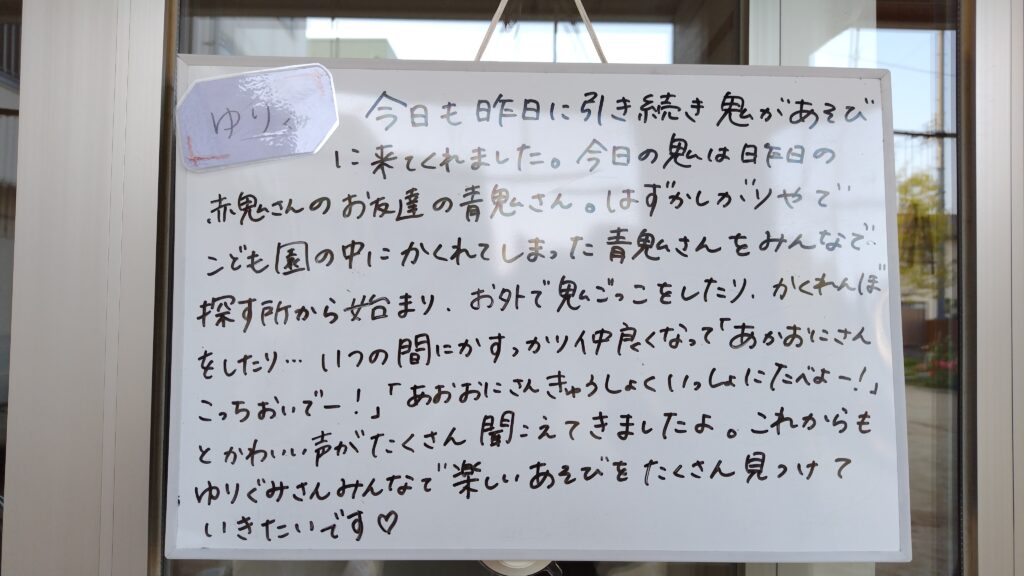 ゆり
今日も昨日に引き続き鬼があそび
に来てくれました。今日の鬼は昨日の
赤鬼さんのお友達の青鬼さん。はずかしがりやで
こども園の中にかくれてしまった青鬼さんをみんなで
探す所から始まり、お外で鬼ごっこをしたり、かくれんぼ
をしたり… いつの間にかすっかり仲良くなって「あかおにさん
こっちおいでー!」「あおおにさんきゅうしょくいっしょにたべよー!」
とかわいい声がたくさん聞こえてきましたよ。これからも
ゆりぐみさんみんなで楽しいあそびをたくさん見つけて
いきたいです♡